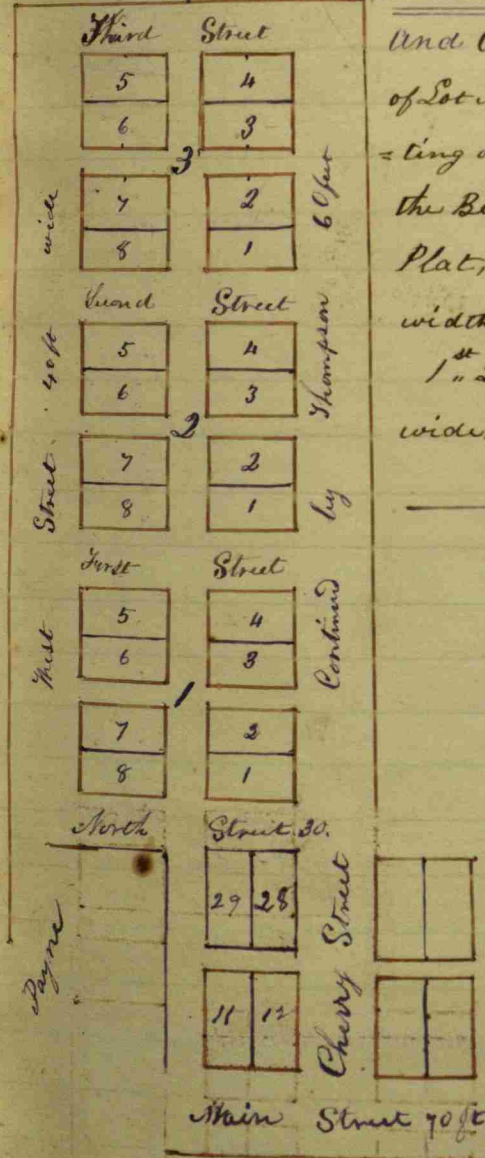 Third Street
5 4
6 3
3
7 2
8 1
Second Street
5 4
6 3
2
7 2
8 1
First Street
5 4
6 3
1
7 2
8 1
North Street 30.
29 28
11 12
Main Street 70 ft
West Street 40 ft wide
Continued by Thompson 60 feet
Cherry Street
Payne
And
of Lot
=ting
the Be
Plat,
width
1st
wide